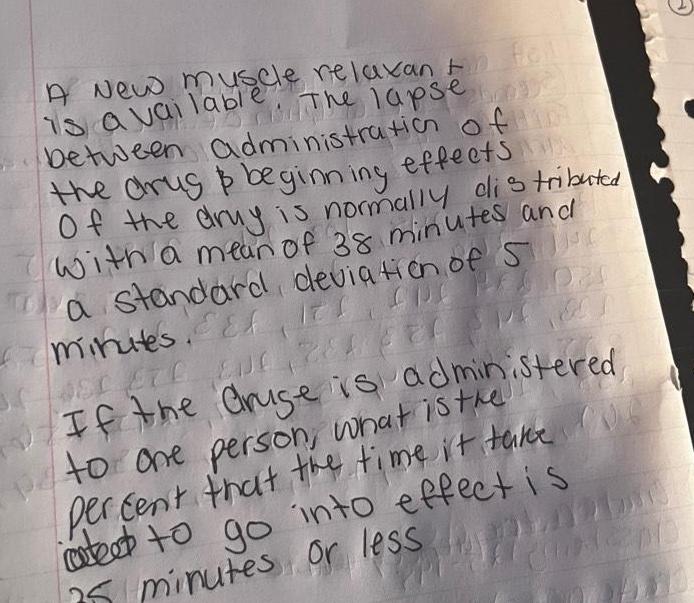 A New muscle relaxant
is available. The lapse
between administration of
the drug & beginning effects
Of the drug is normally distributed
with a mean of 38 minutes and
a standard deviation of 5
minutes.
If the druge is administered
to one person, what is the
percent that the time it take
to go into effect is
minutes or less